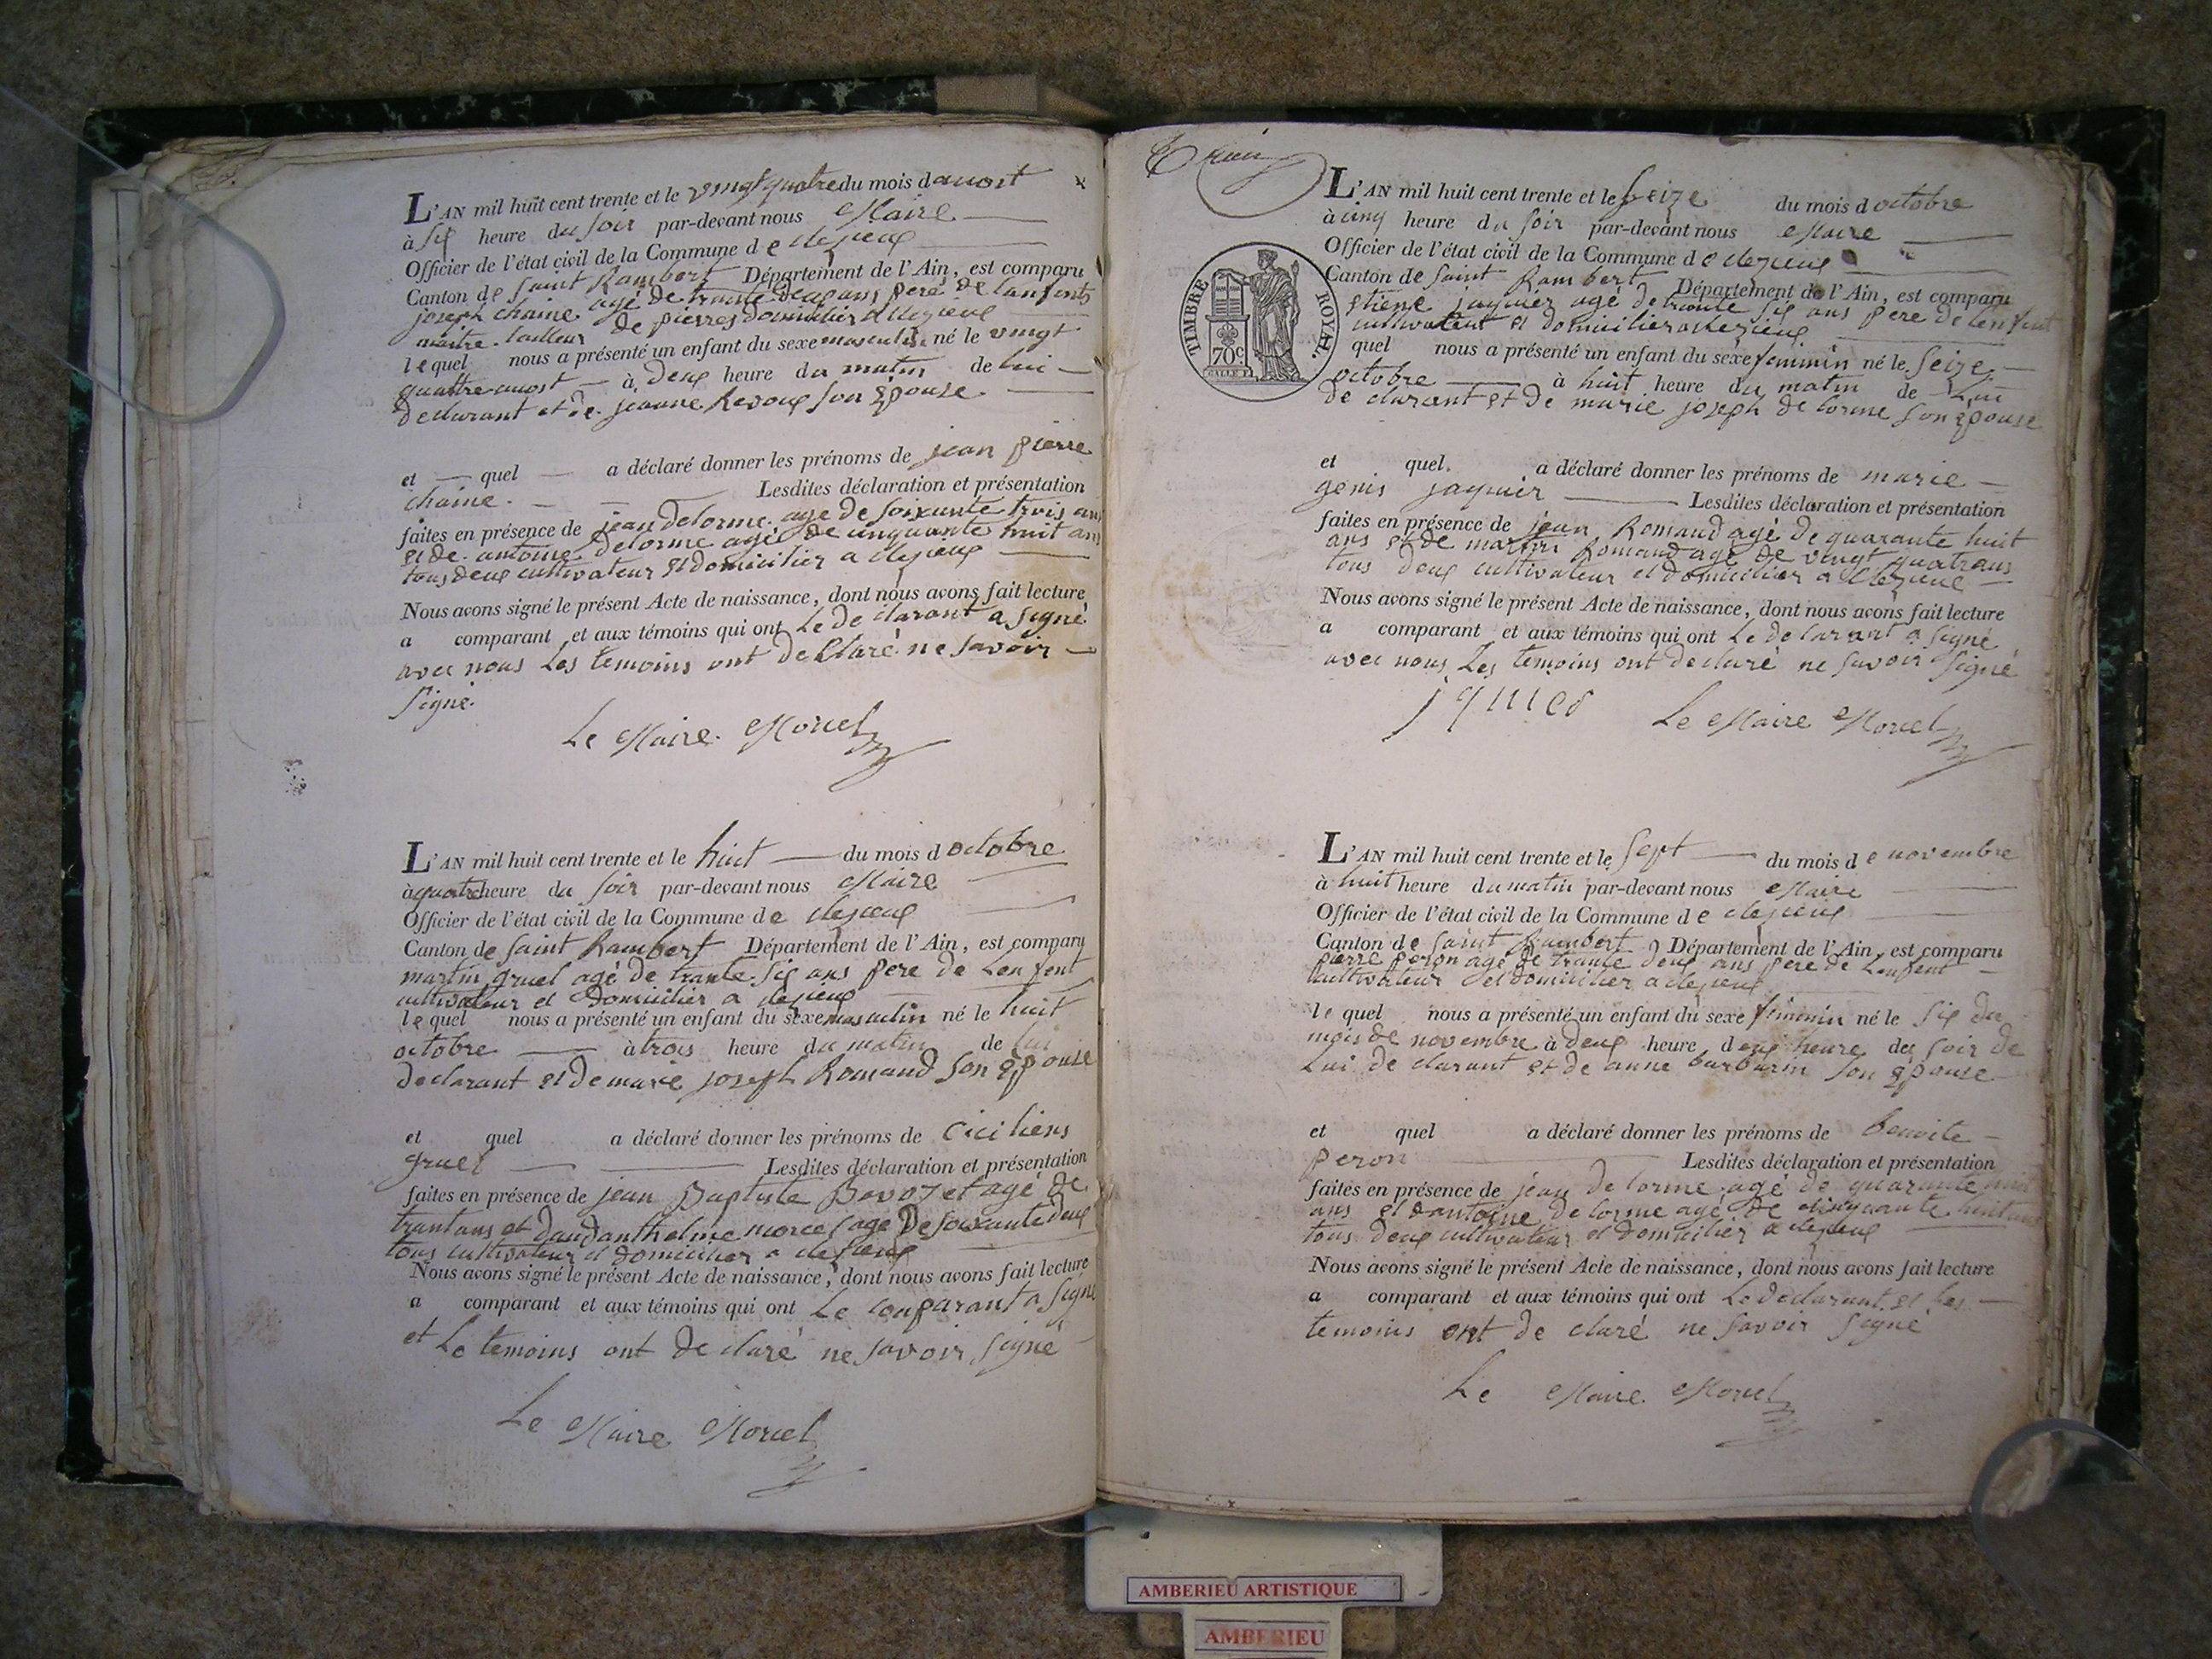 L'AN mil huit cent trente et le vingt quatre du mois d auost
à six heure du soir par-devant nous Maire
Officier de l'état civil de la Commune de clezieux
Canton de saint Rambert Département de l'Ain, est comparu
joseph chaine agé de trante deux ans pere de lanfents
maitre tailleur de pierres domicilier a clezieux
lequel nous a présenté un enfant du sexe masculin né le vingt
quattre auost à deux heure du matin de lui
declarant et de jeanne Revoux son Epouse
et quel a déclaré donner les prénoms de jean pierre
chaine. Lesdites déclaration et présentation
faites en présence de jean delorme age de soixante trois ans
et de antoine delorme agé de cinquante huit ans
tous deux cultivateur et domicilier a clezieux
Nous avons signé le présent Acte de naissance, dont nous avons fait lecture
a comparant et aux témoins qui ont Le de clarant a signé
avec nous Les temoins ont declaré ne savoir
signé.
Le Maire Morcel
L'AN mil huit cent trente et le huit du mois d octobre
à quatre heure du soir par-devant nous Maire
Officier de l'état civil de la Commune de clezieux
Canton de saint Rambert Département de l'Ain, est comparu
martin gruel agé de trante six ans pere de Lenfent
cultivateur et domicilier a clezieux
lequel nous a présenté un enfant du sexe masculin né le huit
octobre à trois heure du matin de lui
declarant et de marie joseph Romand son Epouse
et quel a déclaré donner les prénoms de ciciliens
gruel Lesdites déclaration et présentation
faites en présence de jean Baptiste Bovozet agé de
trantans et danthelme morcel age De soixante deux
tous cultivateur et domicilier a clezieux
Nous avons signé le présent Acte de naissance, dont nous avons fait lecture
a comparant et aux témoins qui ont Le comparant a signé
et Le temoins ont de claré ne savoir signé
Le Maire Morcel
L'AN mil huit cent trente et le seize du mois d octobre
à cinq heure du soir par-devant nous Maire
Officier de l'état civil de la Commune de clezieux
Canton de saint Rambert Département de l'Ain, est comparu
etiene jaquier agé de trante six ans pere de Lenfent
cultivateur et domicilier a clezieux
quel nous a présenté un enfant du sexe feminin né le seize
octobre à huit heure du matin de Lui
de clarant et de marie joseph de lorme son Epouse
et quel. a déclaré donner les prénoms de marie
genis jaquier Lesdites déclaration et présentation
faites en présence de jean Romand agé de quarante huit
ans et de martin Romand agé de vingt quatrans
tous deux cultivateur et domicilier a clezieux
Nous avons signé le présent Acte de naissance, dont nous avons fait lecture
a comparant et aux témoins qui ont Le de larant a signé
avec nous Les temoins ont declaré ne savoir signé
Le Maire Morcel
TIMBRE ROYAL.
70 c.
L'AN mil huit cent trente et le sept du mois de novembre
à huit heure du matin par-devant nous Maire
Officier de l'état civil de la Commune de clezieux
Canton de saint Rambert Département de l'Ain, est comparu
pierre peron agé de trante deux ans pere de Lenfent
cultivateur et domicilier a clezieux
lequel nous a présenté un enfant du sexe féminin né le six du
mois de novembre à deux heure deux heure du soir de
Lui de clarant et de anne barbarin son Epouse
et quel a déclaré donner les prénoms de benoite
peron Lesdites déclaration et présentation
faites en présence de jean de lorme agé de quarante
ans et dantoine de lorme agé de cinquante huitans
tous deux cultivateur et domicilier a clezieux
Nous avons signé le présent Acte de naissance, dont nous avons fait lecture
a comparant et aux témoins qui ont Le déclarant et les
temoins ont de claré ne savoir signé
Le Maire Morcel
AMBERIEU ARTISTIQUE
AMBERIEU